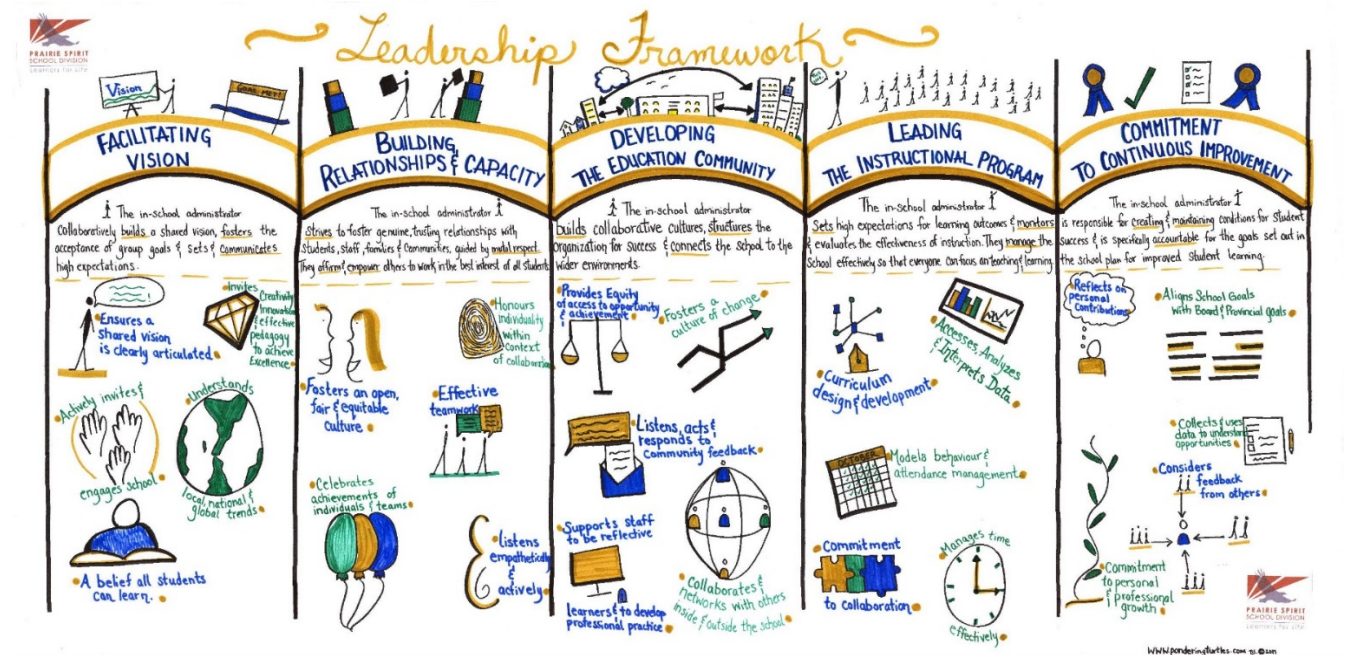 PRAIRIE SPIRIT
SCHOOL DIVISION
Learners for Life
Leadership Framework
Vision
GOAL MET!
FACILITATING
VISION
The in-school administrator
Collaboratively builds a shared vision, fosters the
acceptance of group goals & sets & communicates
high expectations.
Ensures a
shared vision
is clearly articulated.
Invites
Creativity
Innovation
& effective
pedagogy
to achieve
Excellence.
Actively invites &
engages school
Understands
local, national &
global trends.
A belief all students
can learn.
BUILDING
RELATIONSHIPS & CAPACITY
The in-school administrator
Strives to foster genuine, trusting relationships with
Students, staff, families & Communities, guided by mutal respect.
They affirm & empower others to work in the best interest of all students
Fosters an open,
fair & equitable
culture.
Honours
individuality
within
Context
of collaboration
Effective
teamwork
Celebrates
achievements of
individuals & teams.
Listens
empathetically
&
actively.
DEVELOPING
THE EDUCATION COMMUNITY
The in-school administrator
builds collaborative cultures, structures the
organization for success & connects the school to the
wider environments.
Provides Equity
of access to opportunity
& achievement
Fosters a
culture of change.
Listens, acts &
responds to
community feedback
Supports staff
to be reflective
learners & to develop
professional practice
Collaborates &
networks with others
inside & outside the school
LEADING
THE INSTRUCTIONAL PROGRAM
The in-school administrator
Sets high expectations for learning outcomes & monitors
& evaluates the effectiveness of instruction. They manage the
School effectively so that everyone can focus on teaching & learning.
Curriculum
design & development
Accesses, Analyzes
& Interprets Data.
OCTOBER
Models behaviour &
attendance management.
Commitment
to collaboration
Manages time
effectively
COMMITMENT
TO CONTINUOUS IMPROVEMENT
The in-school administrator
is responsible for creating & maintaining conditions for student
success & is specifically accountable for the goals set out in
the school plan for improved student learning.
Reflects on
personal
contributions
Aligns School Goals
With Board & Provincial goals
Collects & uses
data to understand
opportunities
Considers
feedback
from others
Commitment
to personal
& professional
growth
PRAIRIE SPIRIT
SCHOOL DIVISION
Learners for Life
www.ponderingturtles.com